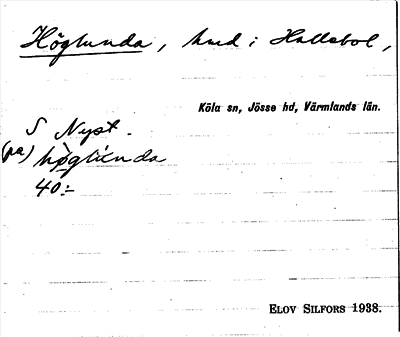 Höglunda, hmd i Hallebol,
Köla sn, Jösse hd, Värmlands län.
S Nyst.
(pa) hö̀gliénda
40:-
ELOV SILFORS 1938.